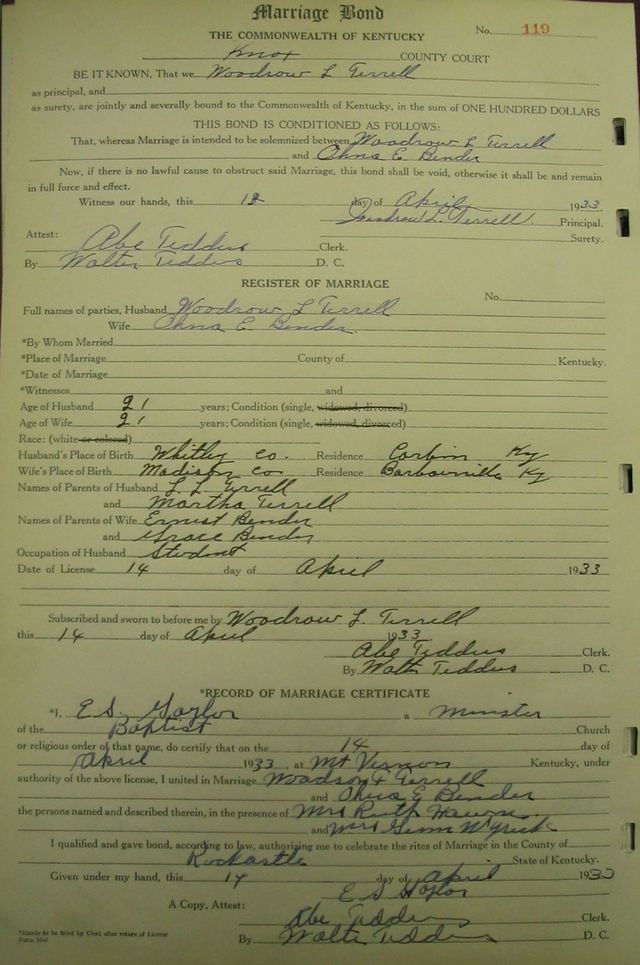 Marriage Bond
THE COMMONWEALTH OF KENTUCKY
No. 119
Knox COUNTY COURT
BE IT KNOWN, That we Woodrow L Terrell
as principal, and
as surety, are jointly and severally bound to the Commonwealth of Kentucky, in the sum of ONE HUNDRED DOLLARS
THIS BOND IS CONDITIONED AS FOLLOWS:
That, whereas Marriage is intended to be solemnized between Woodrow L Terrell
and E. Bender
Now, if there is no lawful cause to obstruct said Marriage, this bond shall be void, otherwise it shall be and remain
in full force and effect.
Witness our hands, this day of April 1933
Woodrow L. Terrell. Principal.
Surety.
Attest: Abe Tedders Clerk.
By Walter Tedders D. C.
REGISTER OF MARRIAGE
No.
Full names of parties, Husband Woodrow L Terrell
Wife E. Bender
*By Whom Married
*Place of Marriage County of Kentucky.
*Date of Marriage
*Witnesses and
Age of Husband 21 years; Condition (single, widowed, divorced)
Age of Wife 21 years; Condition (single, widowed, divorced)
Race: (white or colored)
Husband's Place of Birth Whitley Co. Residence Corbin Ky
Wife's Place of Birth Madison Co Residence Barbourville Ky
Names of Parents of Husband L. L. Terrell
and Martha Terrell
Names of Parents of Wife Ernest Bender
and Grace Bender
Occupation of Husband Student
Date of License 14 day of April 1933
Subscribed and sworn to before me by Woodrow L. Terrell
this 14 day of April 1933.
Abe Tedders Clerk.
By Walter Tedders D. C.
*RECORD OF MARRIAGE CERTIFICATE
*I, E S a Minister
of the Baptist Church
or religious order of that name, do certify that on the 14 day of
April 1933, at Mt Vernon Kentucky, under
authority of the above license, I united in Marriage Terrell
and E Bender
the persons named and described therein, in the presence of Mrs Ruth
and Mrs
I qualified and gave bond, according to law, authorizing me to celebrate the rites of Marriage in the County of
Rockcastle State of Kentucky.
Given under my hand, this 14 day of April 1933
E S
A Copy, Attest: Abe Tedders Clerk.
By Walter Tedders D. C.
*Blanks to be filled by Clerk after return of License